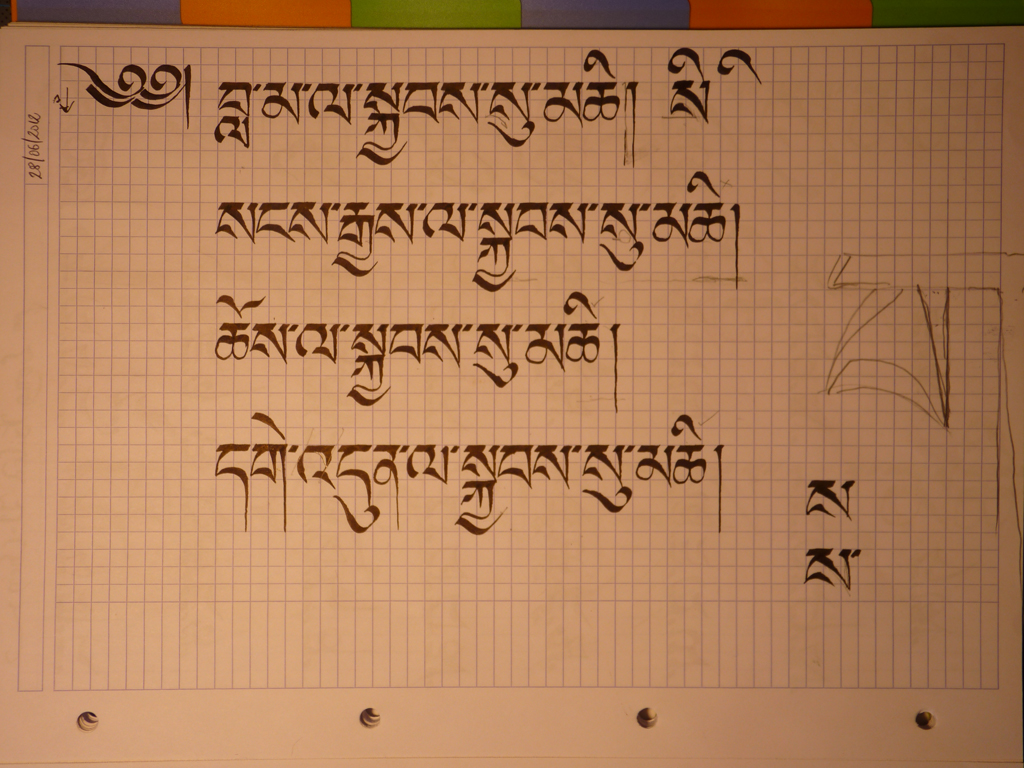 ༄༅། བླ་མ་ལ་སྐྱབས་སུ་མཆི།། སི ི
སངས་རྒྱས་ལ་སྐྱབས་སུ་མཆི།
ཆོས་ལ་སྐྱབས་སུ་མཆི།
དགེ་འདུན་ལ་སྐྱབས་སུ་མཆི།
ས
ས་
28/06/2012